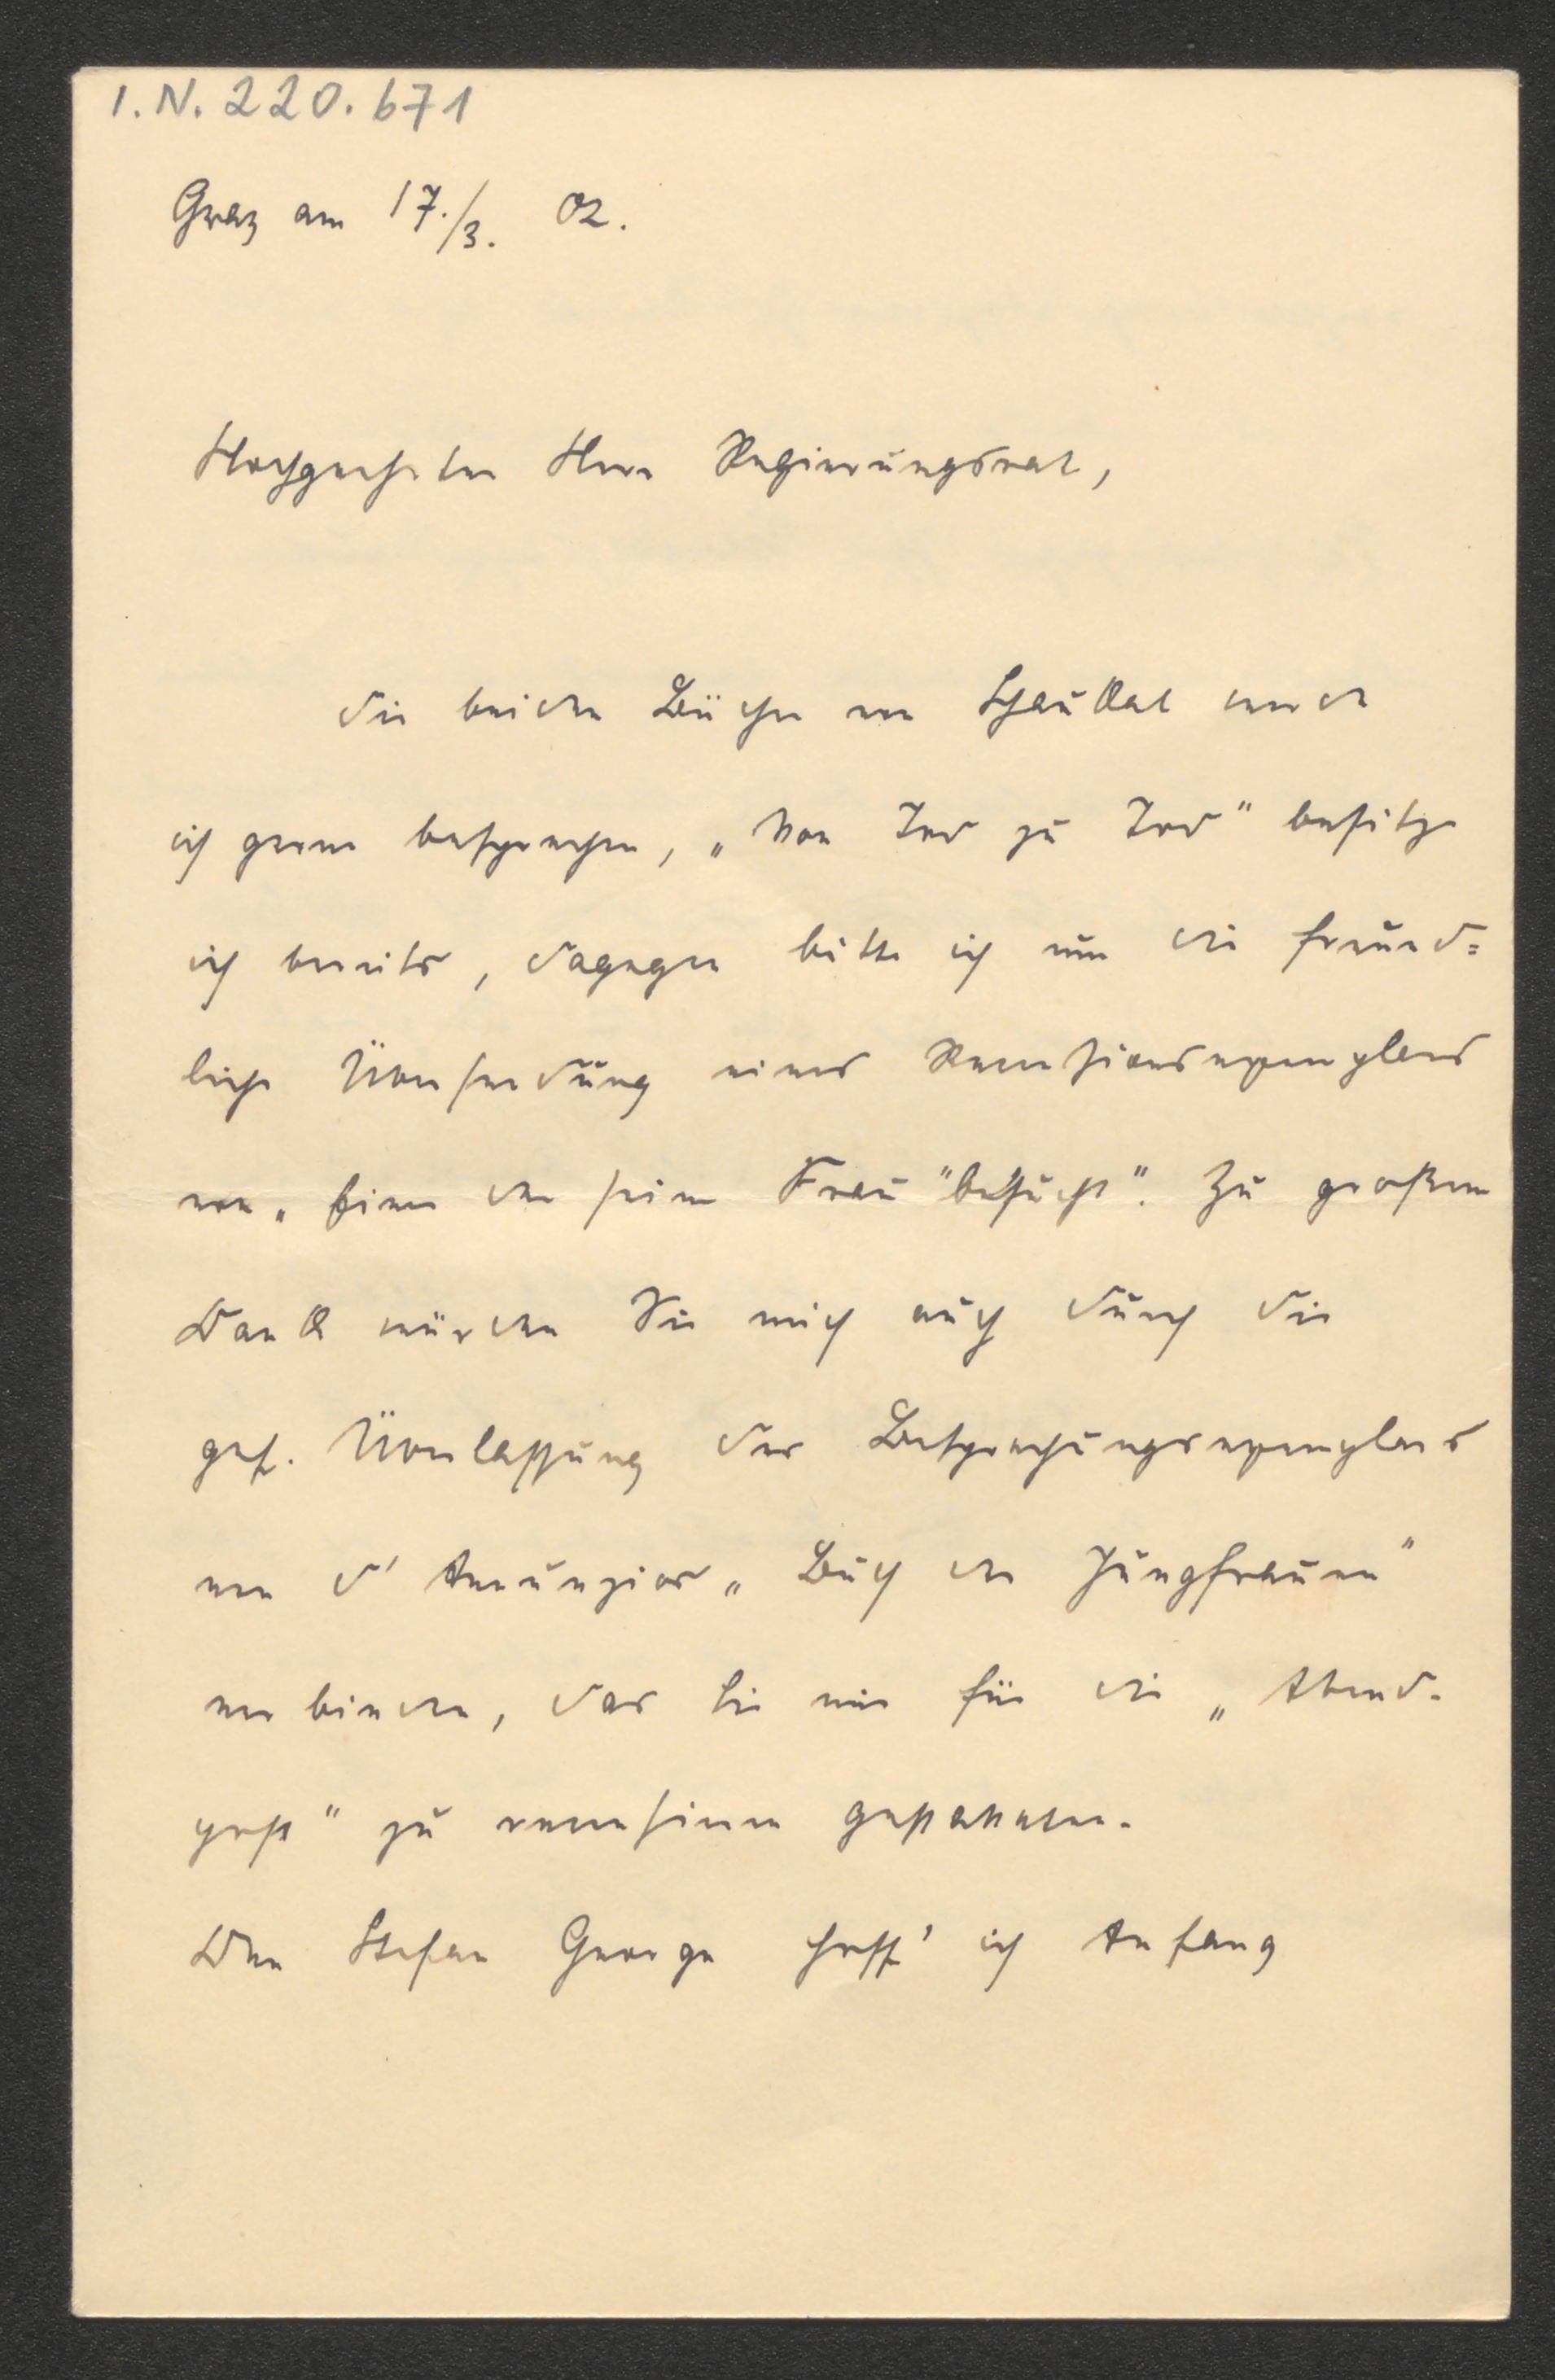 I.N. 220.671
Graz am 17./3. 02.
Hochgeehrter Herr Regierungsrat,
die beiden Bücher von Schaukal werde
ich gerne besprechen, „Von Tod zu Tod" besitze
ich bereits, dagegen bitte ich um die freund=
liche Übersendung eines Recensionsexemplares
von „Einer der seine Frau "besucht". Zu großem
Dank würden Sie mich auch durch die
gef. Überlassung des Besprechungsexemplares
von d'Annunzios „Buch der Jungfrauen"
verbinden, das Sie mir für die „Abend-
post" zu recensieren gestatteten.
Den Stefan George hoff' ich Anfang